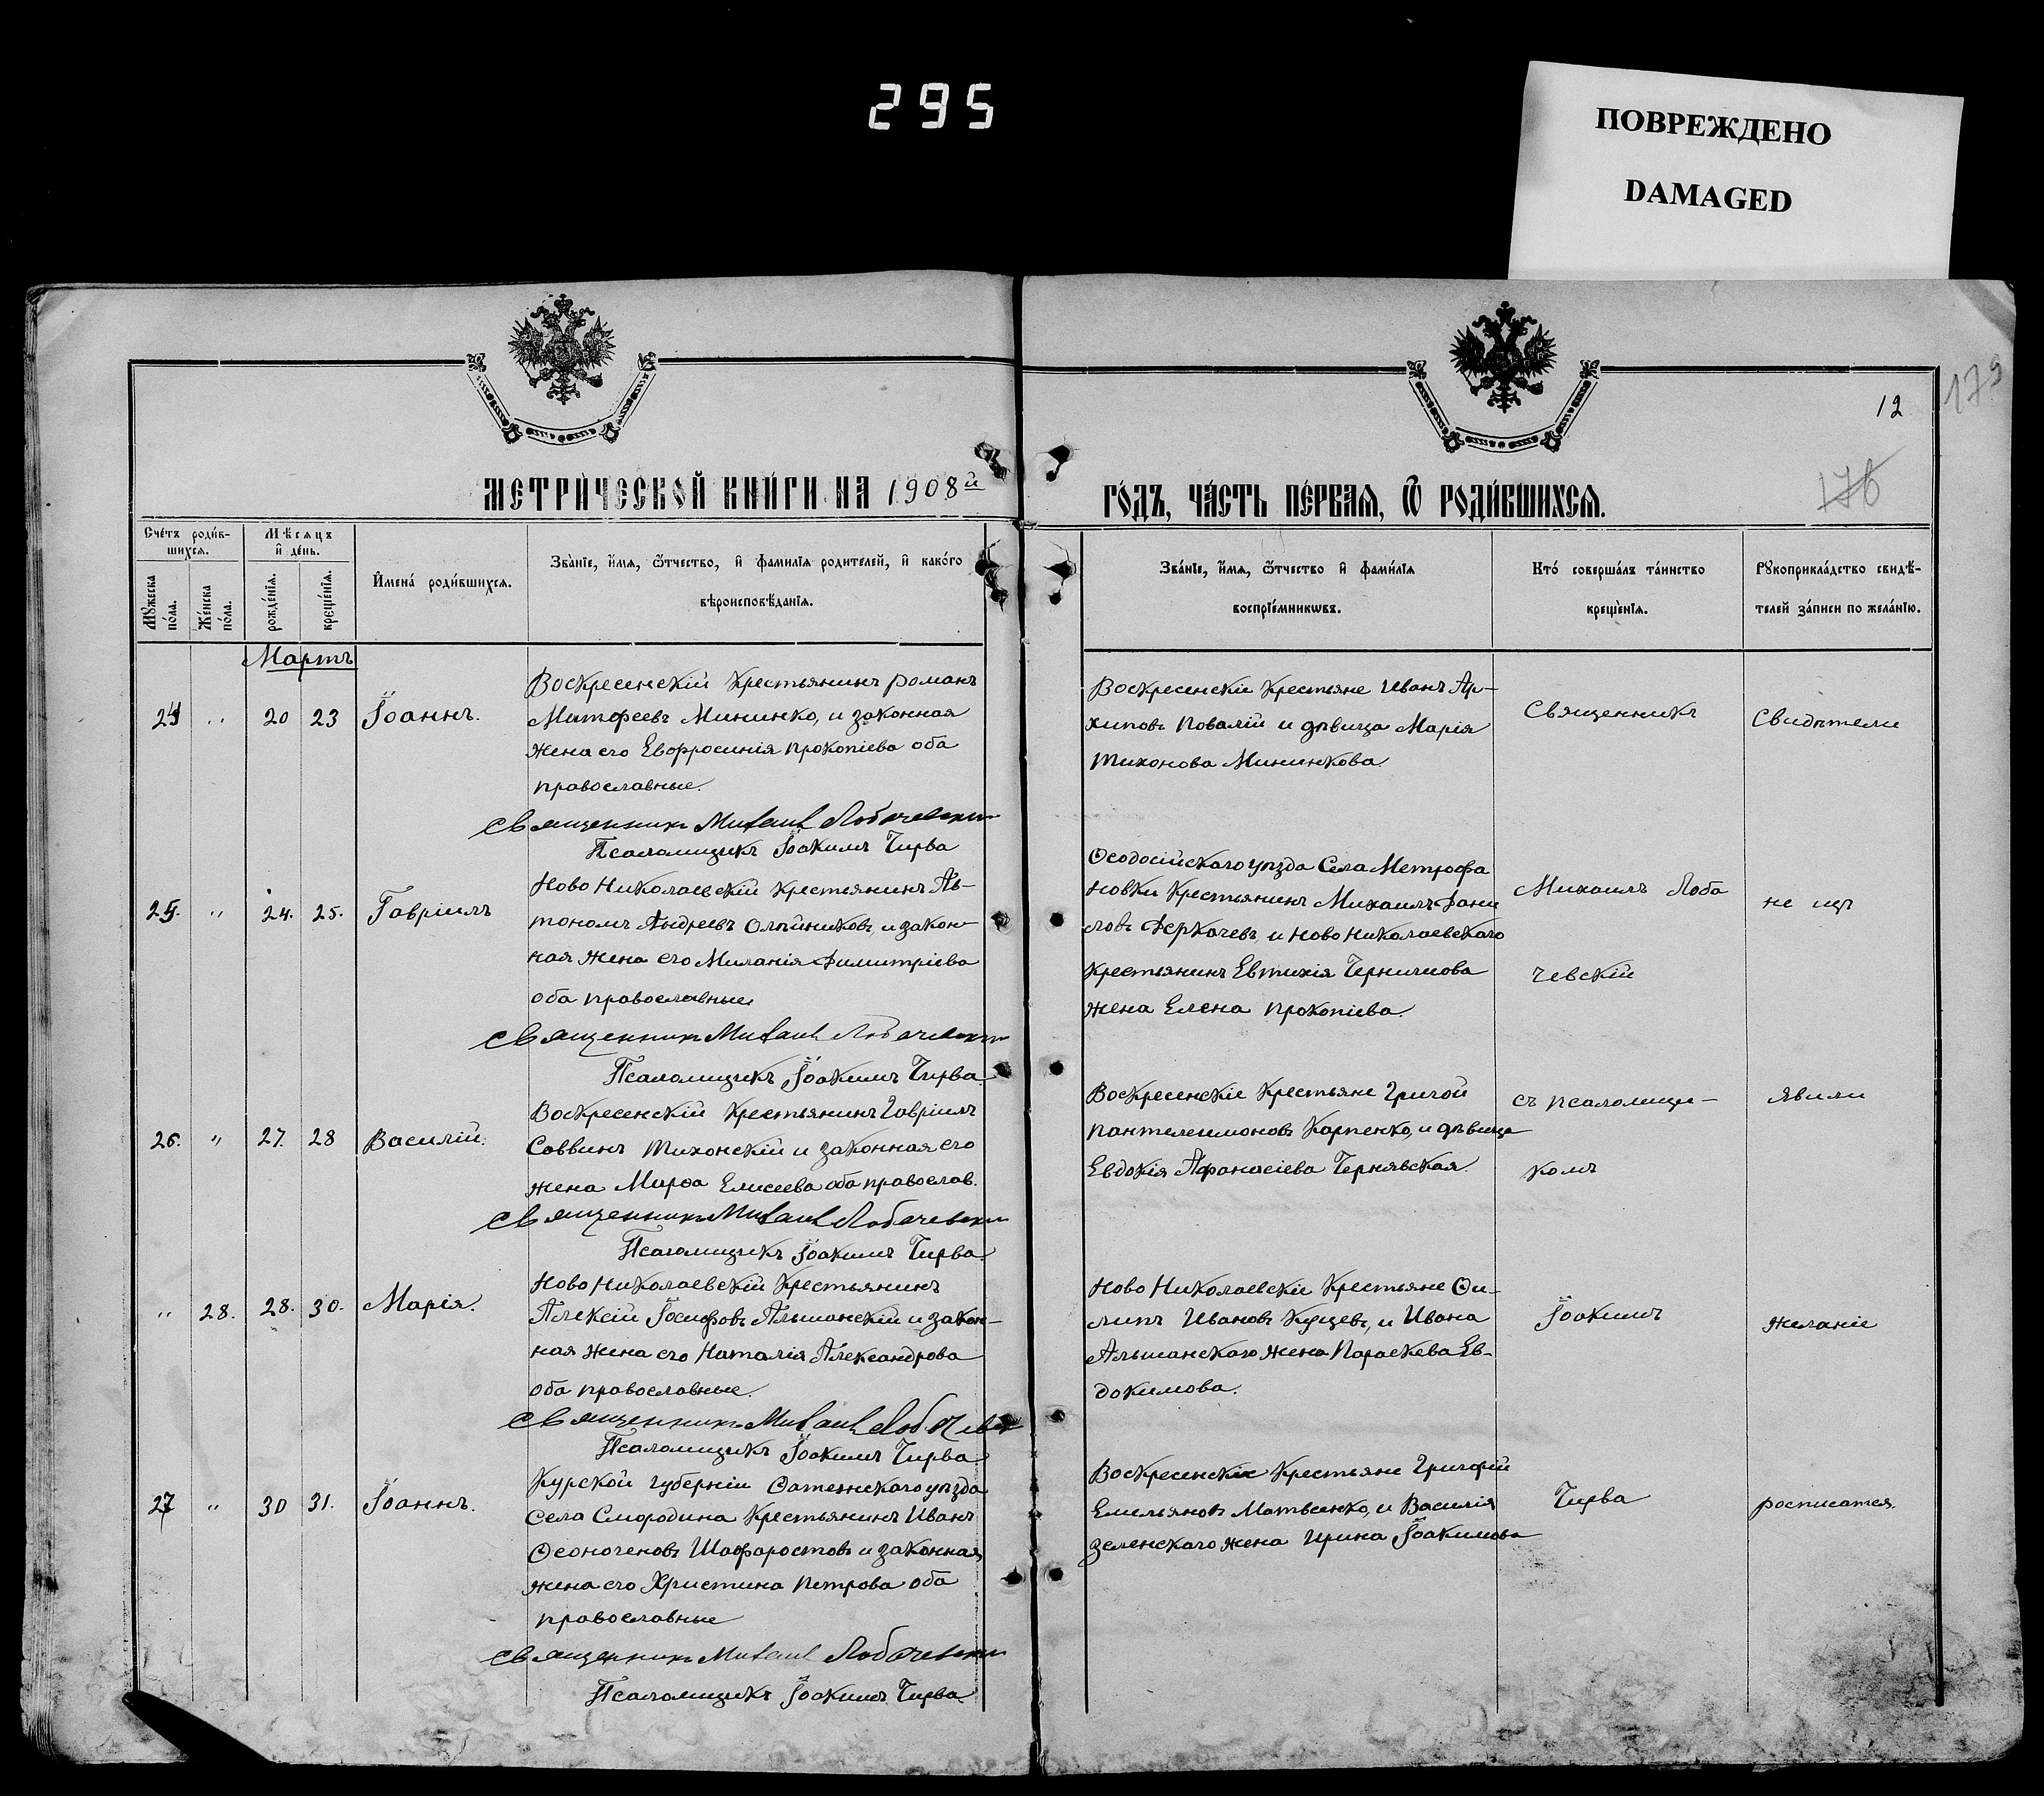 295
ПОВРЕЖДЕНО
DAMAGED
179
12
176
МЕТРИ́ЧЕСКОЙ КНИ́ГИ НА 1908й
ГО́ДЪ, ЧА́СТЬ ПЕ́РВАѦ, Ѿ РОДИ́ВШИХСѦ.
Счéтъ роди́в-
шихсѧ.
Мѣсѧцъ
и҆ де́нь.
И҆мена́ роди́вшихсѧ.
Зва́нїе, и҆́мѧ, ѻ҆́тчество, и҆ фами́лїѧ роди́телей, и҆ како́го
вѣроисповѣ́данїѧ.
Мꙋ́жеска
по́ла.
Же́нска
по́ла.
рожде́нїѧ.
креще́нїѧ.
Зва́нїе, и҆́мѧ, ѻ҆́тчество и҆ фами́лїѧ
воспрїе́мникѡвъ.
Кто̀ соверша́лъ та́инство
креще́нїѧ.
Рꙋкоприкла́дство свидѣ́-
телей за́писи по жела́нїю.
Мартъ
24 " 20 23 Іоаннъ.
Воскресенскій Крестьянинъ Романъ
Митофеевъ Мининко, и законная
жена его Евфросинія Прокопіева оба
православные.
Священникъ Михаил Лобачевски
Псаломщикъ Іоакимъ Чирва
Воскресенскіе Крестьяне Иванъ Ар-
хиповъ Повалій и дѣвица Марія
Тихонова Мининкова.
Священникъ
Свидѣтели
25. " 24. 25. Гавріилъ
Ново Николаевскій Крестьянинъ Ав-
тономъ Андреевъ Олѣйниковъ, и закон-
ная жена его Миланія Димитріева
оба православные
Священникъ Михаил Лобачевски
Псаломщикъ Іоакимъ Чирва
Ѳеодосійскаго уѣзда Села Метрофа
новки Крестьянинъ Михаилъ Дани
ловъ Деркачевъ, и Ново Николаевскаго
Крестьянинъ Евтихія Черничова
жена Елена Прокопіева.
Михаилъ Лоба
чевскій
не изъ
26. " 27. 28 Василій.
Воскресенскій Крестьянинъ Гавріилъ
Саввинъ Тихонскій и законная его
жена Марѳа Елисеева оба православ.
Священникъ Михаил Лобачевски
Псаломщикъ Іоакимъ Чирва.
Воскресенскіе Крестьяне Григой
Пантелеимоновъ Карпенко, и дѣвица
Евдокія Афанасіева Чернявская.
съ псаломщи-
комъ
явили
" 28. 28. 30. Марія.
Ново Николаевскій Крестьянинъ
Алексій Іосифовъ Альшанскій и закон-
ная жена его Наталія Александрова
оба православные.
Священникъ Михаил Лобачевск
Псаломщикъ Іоакимъ Чирва
Ново Николаевскіе Крестьяне Фи-
липъ Ивановъ Куцевъ, и Ивана
Альшанскаго жена Параскева Ев-
докимова.
Іоакимъ
желаніе
27 " 30 31. Іоаннъ.
Курской губерніи Фатежскаго уѣзда
Села Смородина Крестьянинъ Иванъ
Шафоростовъ и законная
жена его Христина Петрова оба
православные
Священникъ Михаил Лобачевски
Псаломщикъ Іоакимъ Чирва
Воскресенскіе Крестьяне Григорій
Емельяновъ Матвенко, и Василія
Зеленскаго жена Ирина Іоакимова
Чирва
росписатся.